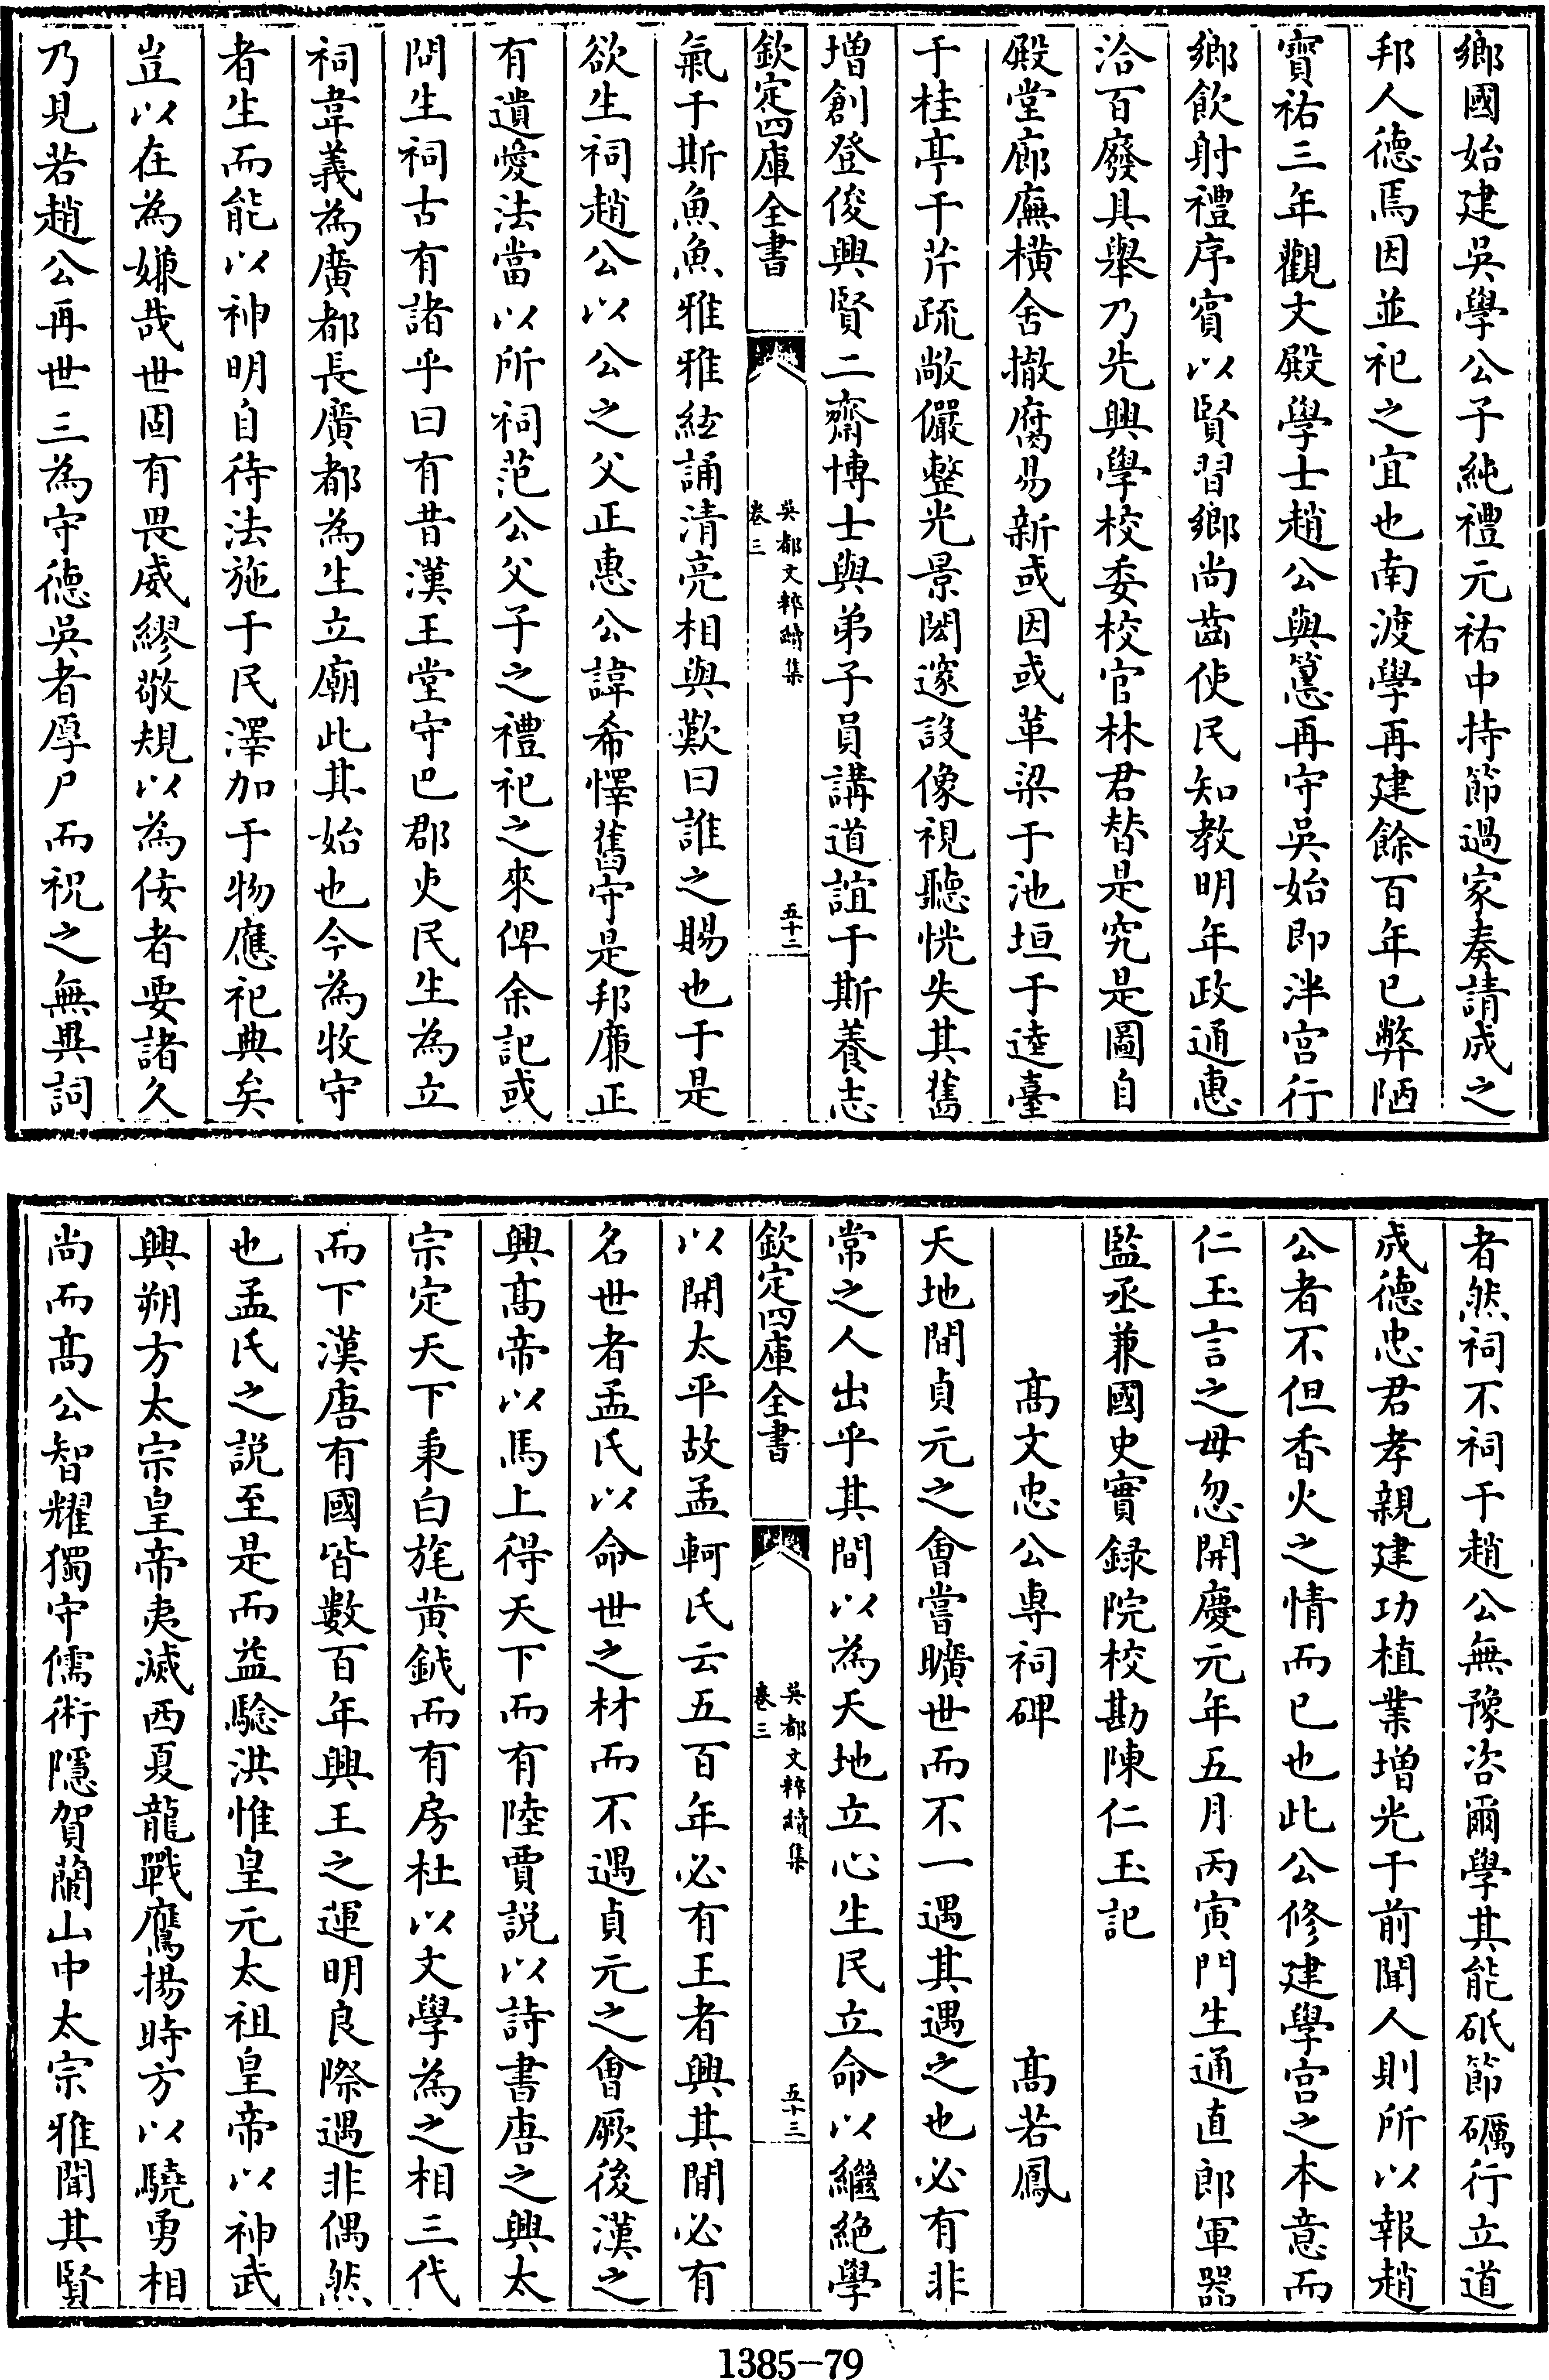 鄉國始建吳學公子純禮元祐中持節過家奏請成之
邦人德焉因並祀之宜也南渡學再建餘百年已弊陋
寳祐三年觀文殿學士趙公與𥲅再守吳始即泮宮行
鄉飲射禮序賓以賢習鄉尚齒使民知教明年政通惠
洽百廢具舉乃先興學校委校官林君替是究是圖自
殿堂廊廡横舍撤腐易新或因或革梁于池垣于逵臺
于桂亭于芹疏敞儼整光景閎邃設像視聽恍失其舊
増創登俊興賢二齋博士與弟子員講道誼于斯養志
欽定四庫全書
吳都文粹續集
卷三
五十二
氣于斯魚魚雅雅絃誦清亮相與歎曰誰之賜也于是
欲生祠趙公以公之父正惠公諱希懌舊守是邦廉正
有遺愛法當以所祠范公父子之禮祀之來俾余記或
問生祠古有諸乎曰有昔漢王堂守巴郡吏民生為立
祠韋義為廣都長廣都為生立廟此其始也今為牧守
者生而能以神明自待法施于民澤加于物應祀典矣
豈以在為嫌哉世固有畏威繆敬規以為佞者要諸久
乃見若趙公再世三為守德吳者厚尸而祝之無異詞
者然祠不祠于趙公無豫咨爾學其能砥節礪行立道
成德忠君孝親建功植業増光于前聞人則所以報趙
公者不但香火之情而已也此公修建學宮之本意而
仁玉言之毋忽開慶元年五月丙寅門生通直郎軍器
監丞兼國史實録院校勘陳仁玉記
髙文忠公專祠碑
髙若鳳
天地間貞元之會嘗曠世而不一遇其遇之也必有非
常之人出乎其間以為天地立心生民立命以繼絶學
欽定四庫全書
吳都文粹續集
卷三
五十三
以開太平故孟軻氏云五百年必有王者興其間必有
名世者孟氏以命世之材而不遇貞元之會厥後漢之
興髙帝以馬上得天下而有陸賈説以詩書唐之興太
宗定天下秉白旄黄鉞而有房杜以文學為之相三代
而下漢唐有國皆數百年興王之運明良際遇非偶然
也孟氏之説至是而益驗洪惟皇元太祖皇帝以神武
興朔方太宗皇帝夷滅西夏龍戰鷹揚時方以驍勇相
尚而髙公智耀獨守儒術隱賀蘭山中太宗雅聞其賢
1385—79